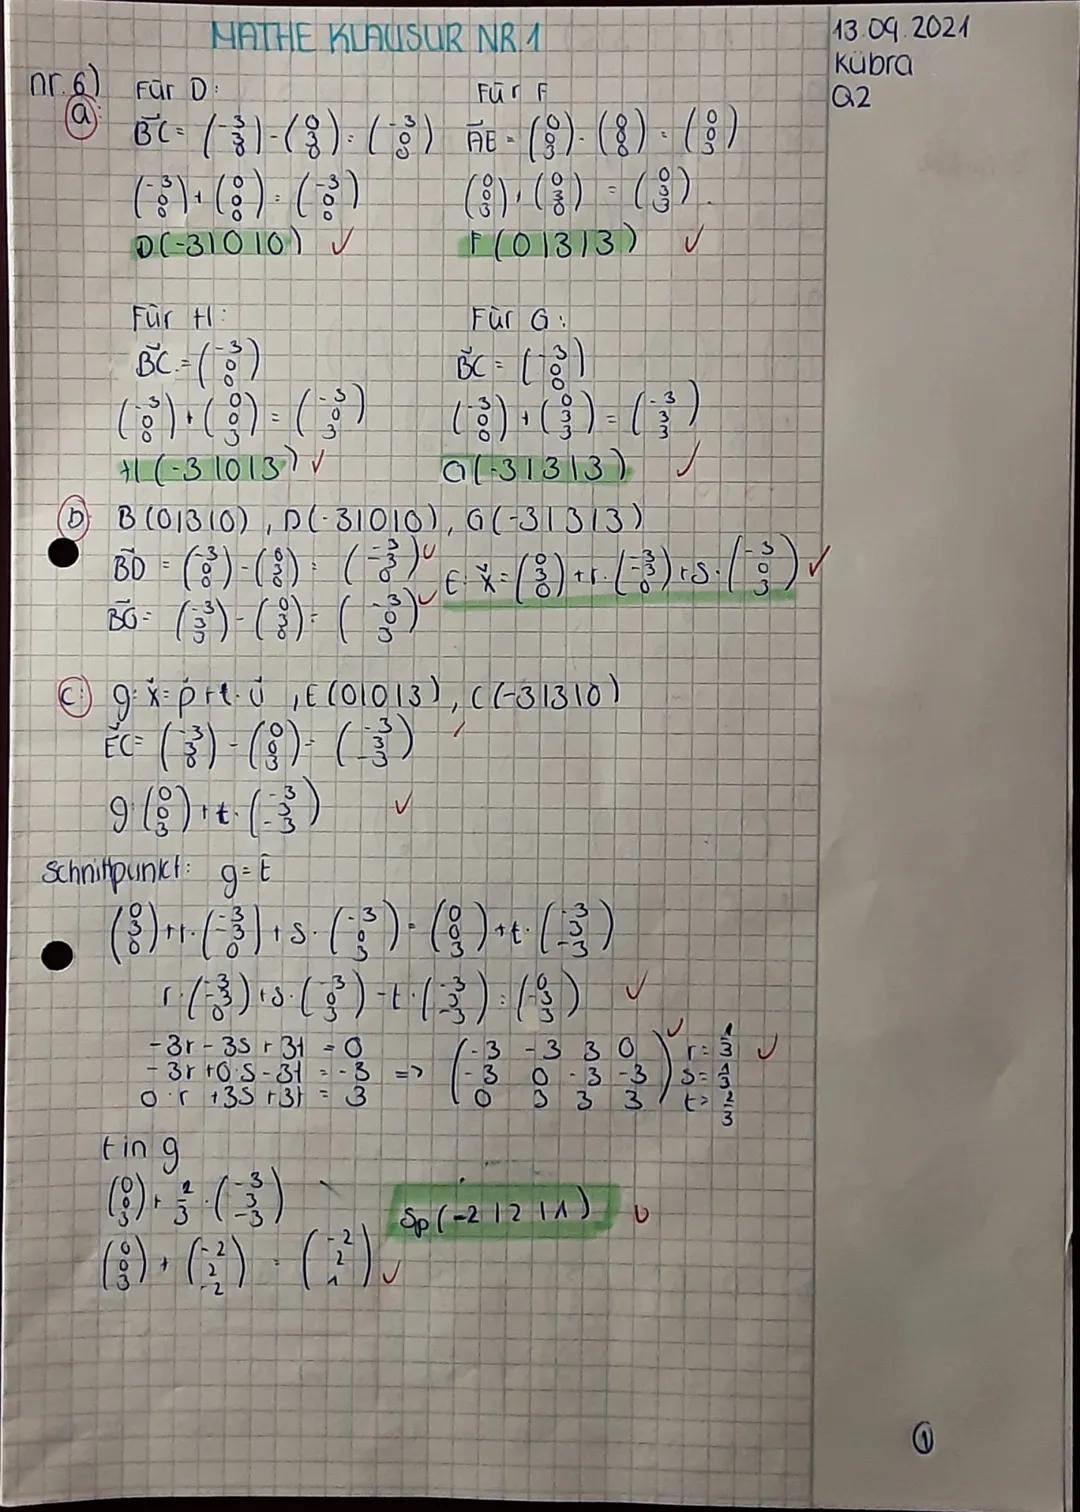 MATHE KLAUSUR NR 1
13.09.2021
Kübra
Q2
nr. 6)
a)
Für D:
BC = (-3 3 0) - (0 3 0) = (-3 0 0)
(-3 0 0) + (0 0 0) = (-3 0 0)
D(-3|0|0) ✓
Für F
AE = (0 0 3) - (0 0 0) = (0 0 3)
(0 0 3) + (0 3 0) = (0 3 3)
F(0|3|3) ✓
Für H:
BC = (-3 0 0)
(-3 0 0) + (0 0 3) = (-3 0 3)
H(-3|0|3) ✓
Für G:
BC = (-3 0 0)
(-3 0 0) + (0 3 3) = (-3 3 3)
G(-3|3|3) ✓
b) B(0|3|0), D(-3|0|0), G(-3|3|3)
BD = (-3 0 0) - (0 3 0) = (-3 -3 0) ✓
BG = (-3 3 3) - (0 3 0) = (-3 0 3) ✓
E: x = (0 3 0) + r · (-3 -3 0) + s · (-3 0 3) ✓
c) g: x = p + t · u, E(0|0|3), C(-3|3|0)
EC = (-3 3 0) - (0 0 3) = (-3 3 -3)
g: (0 0 3) + t · (-3 3 -3) ✓
Schnittpunkt: g = E
(0 3 0) + r · (-3 -3 0) + s · (-3 0 3) = (0 0 3) + t · (-3 3 -3)
r · (-3 -3 0) + s · (-3 0 3) - t · (-3 3 -3) = (0 -3 3) ✓
-3r - 3s + 3t = 0
-3r + 0·s - 3t = -3
0·r + 3s + 3t = 3
=> (-3 -3 3 0
-3 0 -3 -3
0 3 3 3) ✓
r = 1/3 ✓
s = 1/3
t = 2/3
t in g
(0 0 3) + 2/3 · (-3 3 -3)
(0 0 3) + (-2 2 -2) = (-2 2 1) ✓
Sp(-2|2|1) ✓
1